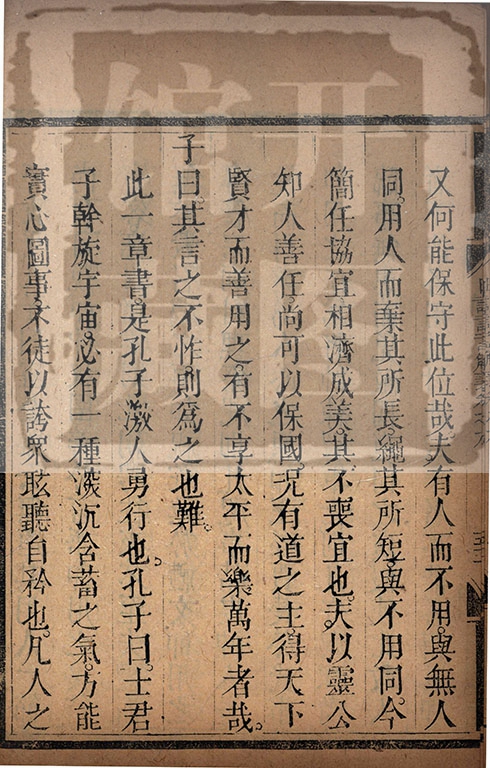 又何能保守此位哉夫有人而不用與無人
同用人而棄其所長繩其所短與不用同今
簡任協宜相濟成美其不喪宜也夫以靈公
知人善任尚可以保國況有道之主得天下
賢才而善用之有不享太平而樂萬年者哉
子曰其言之不怍則為之也難
此一章書是孔子激人勇行也孔子曰士君
子幹旋宇宙必有一種深沉含蓄之氣方能
實心圖事不徒以誇眾眩聽自矜也凡人之
開
圖
館
藏